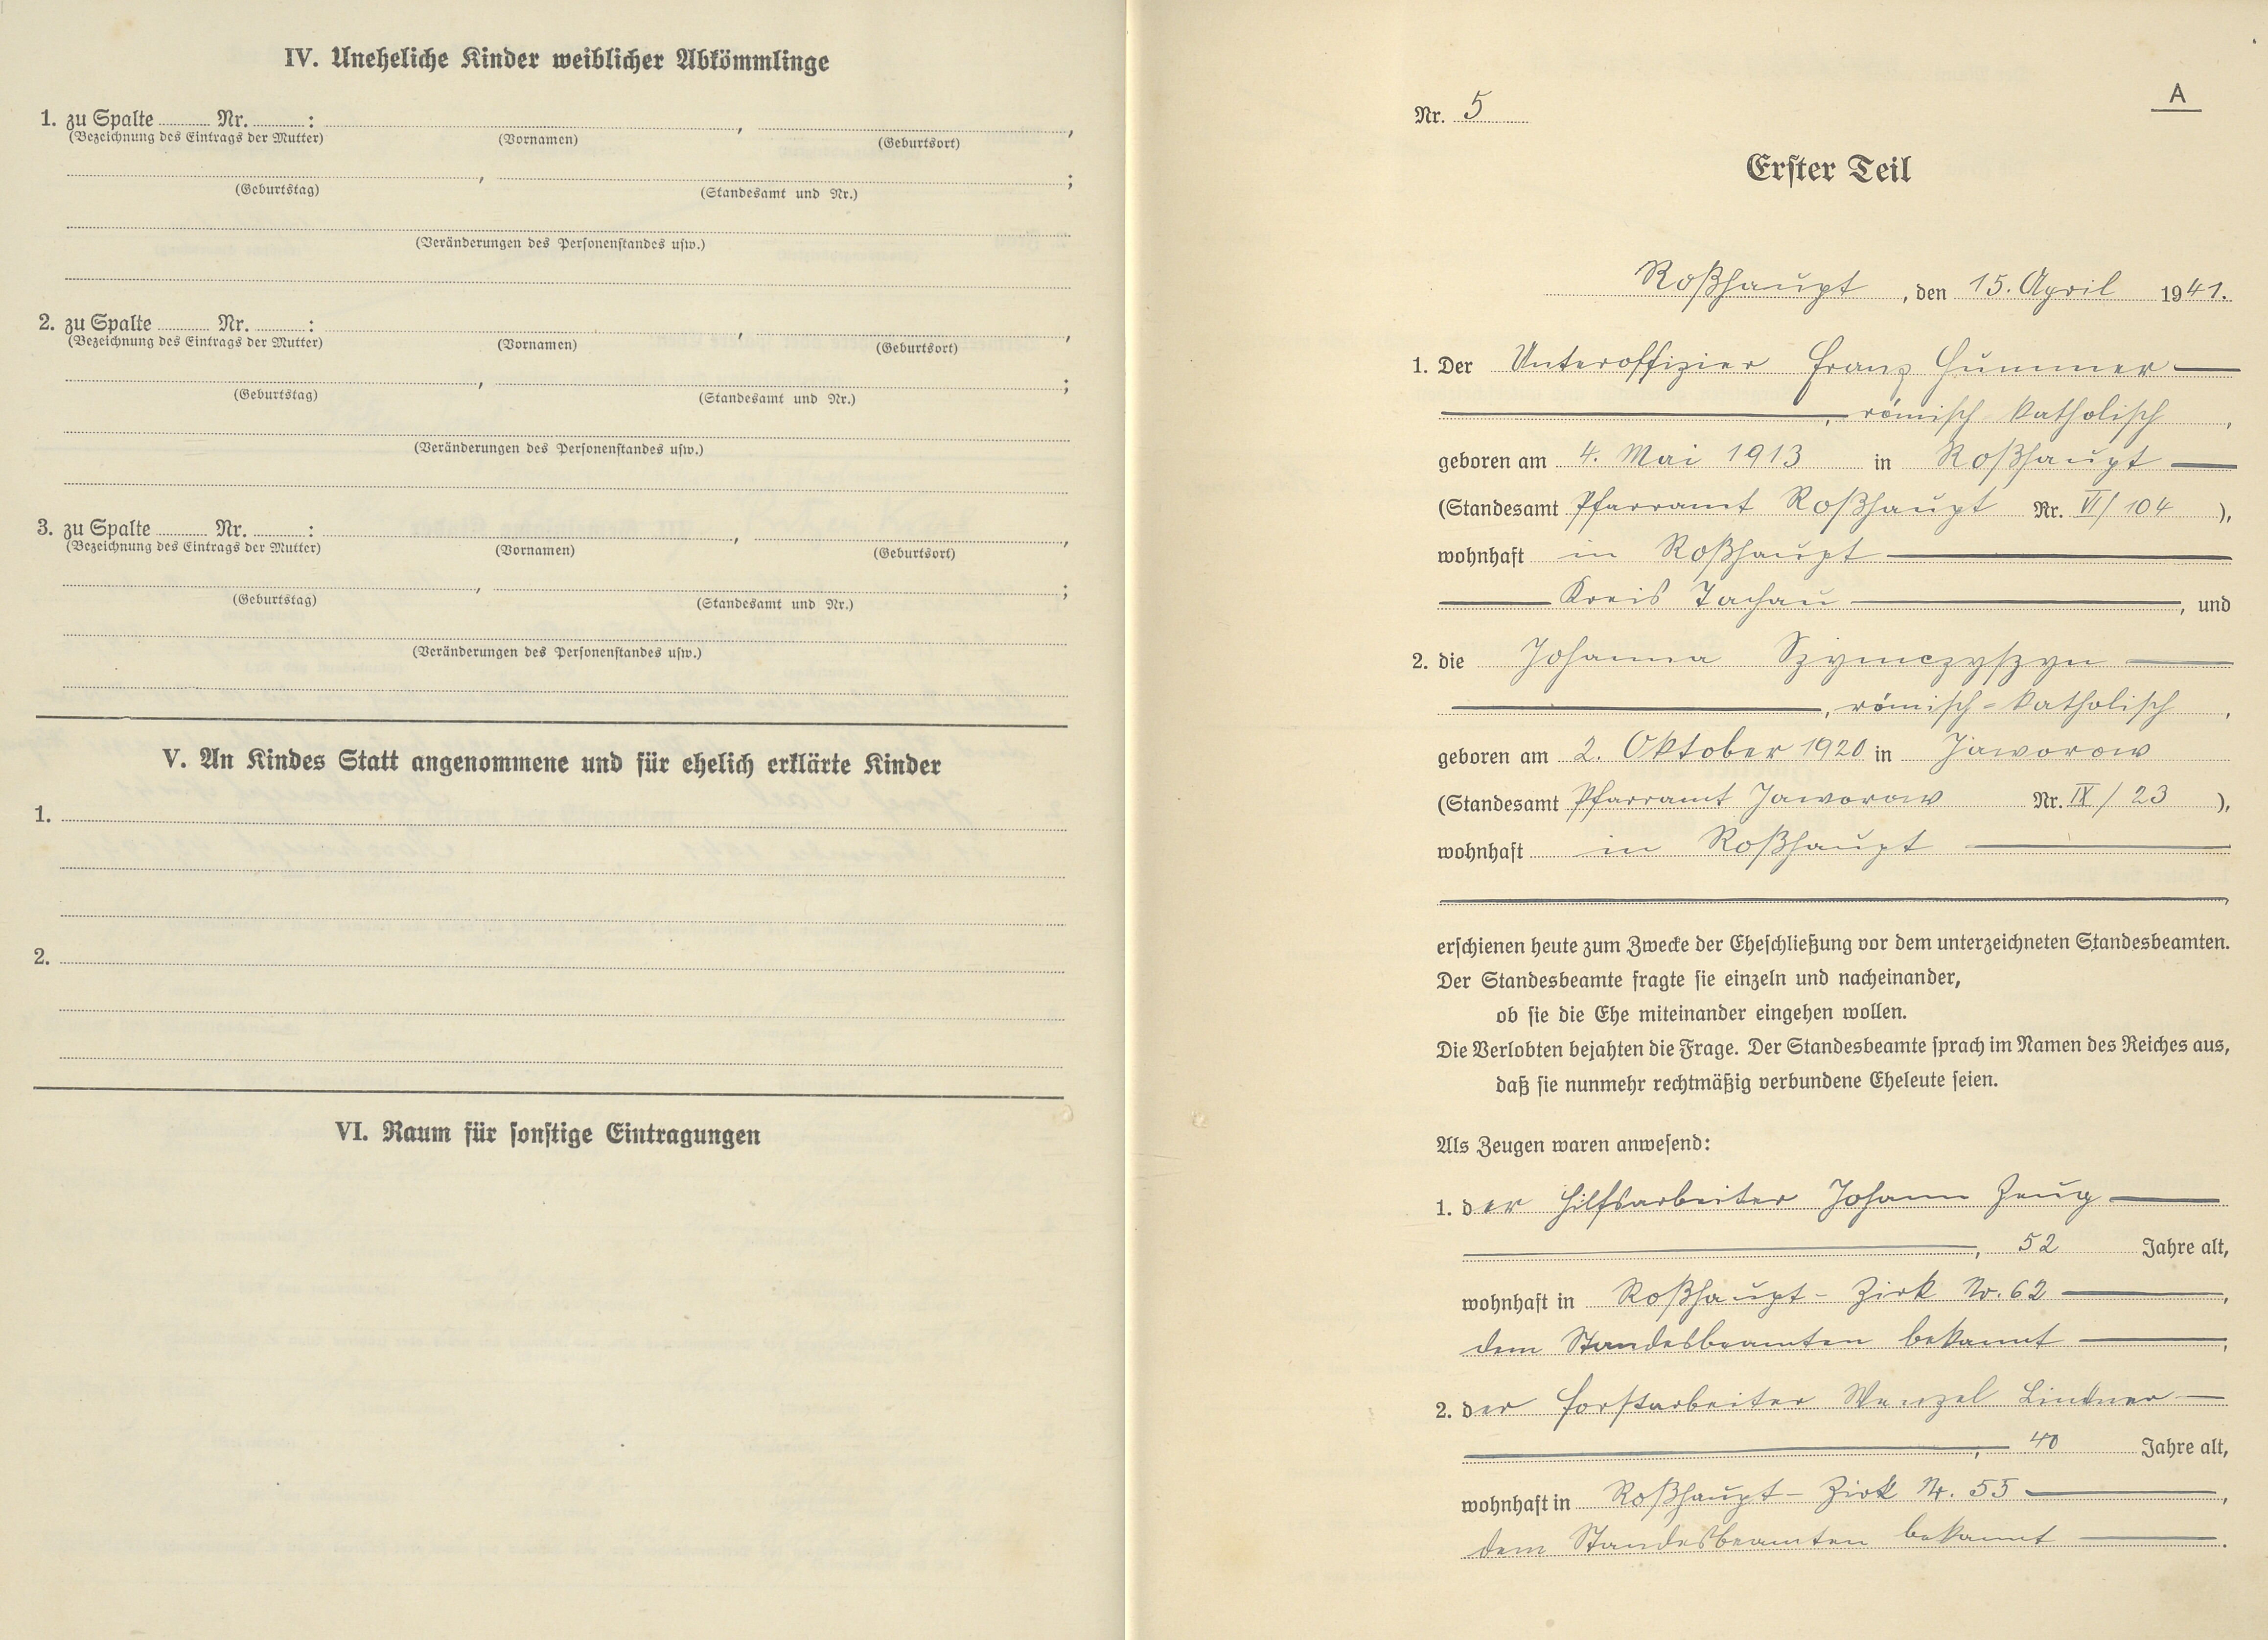 IV. Uneheliche Kinder weiblicher Abkömmlinge
1. zu Spalte ........ Nr. ........ : ................, ................,
(Bezeichnung des Eintrags der Mutter) (Vornamen) (Geburtsort)
................, ................;
(Geburtstag) (Standesamt und Nr.)
(Veränderungen des Personenstandes usw.)
2. zu Spalte ........ Nr. ........ : ................, ................,
(Bezeichnung des Eintrags der Mutter) (Vornamen) (Geburtsort)
................, ................;
(Geburtstag) (Standesamt und Nr.)
(Veränderungen des Personenstandes usw.)
3. zu Spalte ........ Nr. ........ : ................, ................,
(Bezeichnung des Eintrags der Mutter) (Vornamen) (Geburtsort)
................, ................;
(Geburtstag) (Standesamt und Nr.)
(Veränderungen des Personenstandes usw.)
V. An Kindes Statt angenommene und für ehelich erklärte Kinder
1.
2.
VI. Raum für sonstige Eintragungen
A
Nr. 5
Erster Teil
Roßhaupt, den 15. April 1941.
1. Der Unteroffizier Franz Hummer
, römisch katholisch,
geboren am 4. Mai 1913 in Roßhaupt
(Standesamt Pfarramt Roßhaupt Nr. VI/104),
wohnhaft in Roßhaupt
Kreis Tachau, und
2. die Johanna Szymczyszyn
, römisch=katholisch,
geboren am 2. Oktober 1920 in Jaworow
(Standesamt Pfarramt Jaworow Nr. IX/23),
wohnhaft in Roßhaupt
,
erschienen heute zum Zwecke der Eheschließung vor dem unterzeichneten Standesbeamten.
Der Standesbeamte fragte sie einzeln und nacheinander,
ob sie die Ehe miteinander eingehen wollen.
Die Verlobten bejahten die Frage. Der Standesbeamte sprach im Namen des Reiches aus,
daß sie nunmehr rechtmäßig verbundene Eheleute seien.
Als Zeugen waren anwesend:
1. der Hilfsarbeiter Johann Zeug
, 52 Jahre alt,
wohnhaft in Roßhaupt - Zirk Nr. 62,
dem Standesbeamten bekannt;
2. der Forstarbeiter Wenzel Lindner
, 40 Jahre alt,
wohnhaft in Roßhaupt - Zirk Nr. 55,
dem Standesbeamten bekannt.